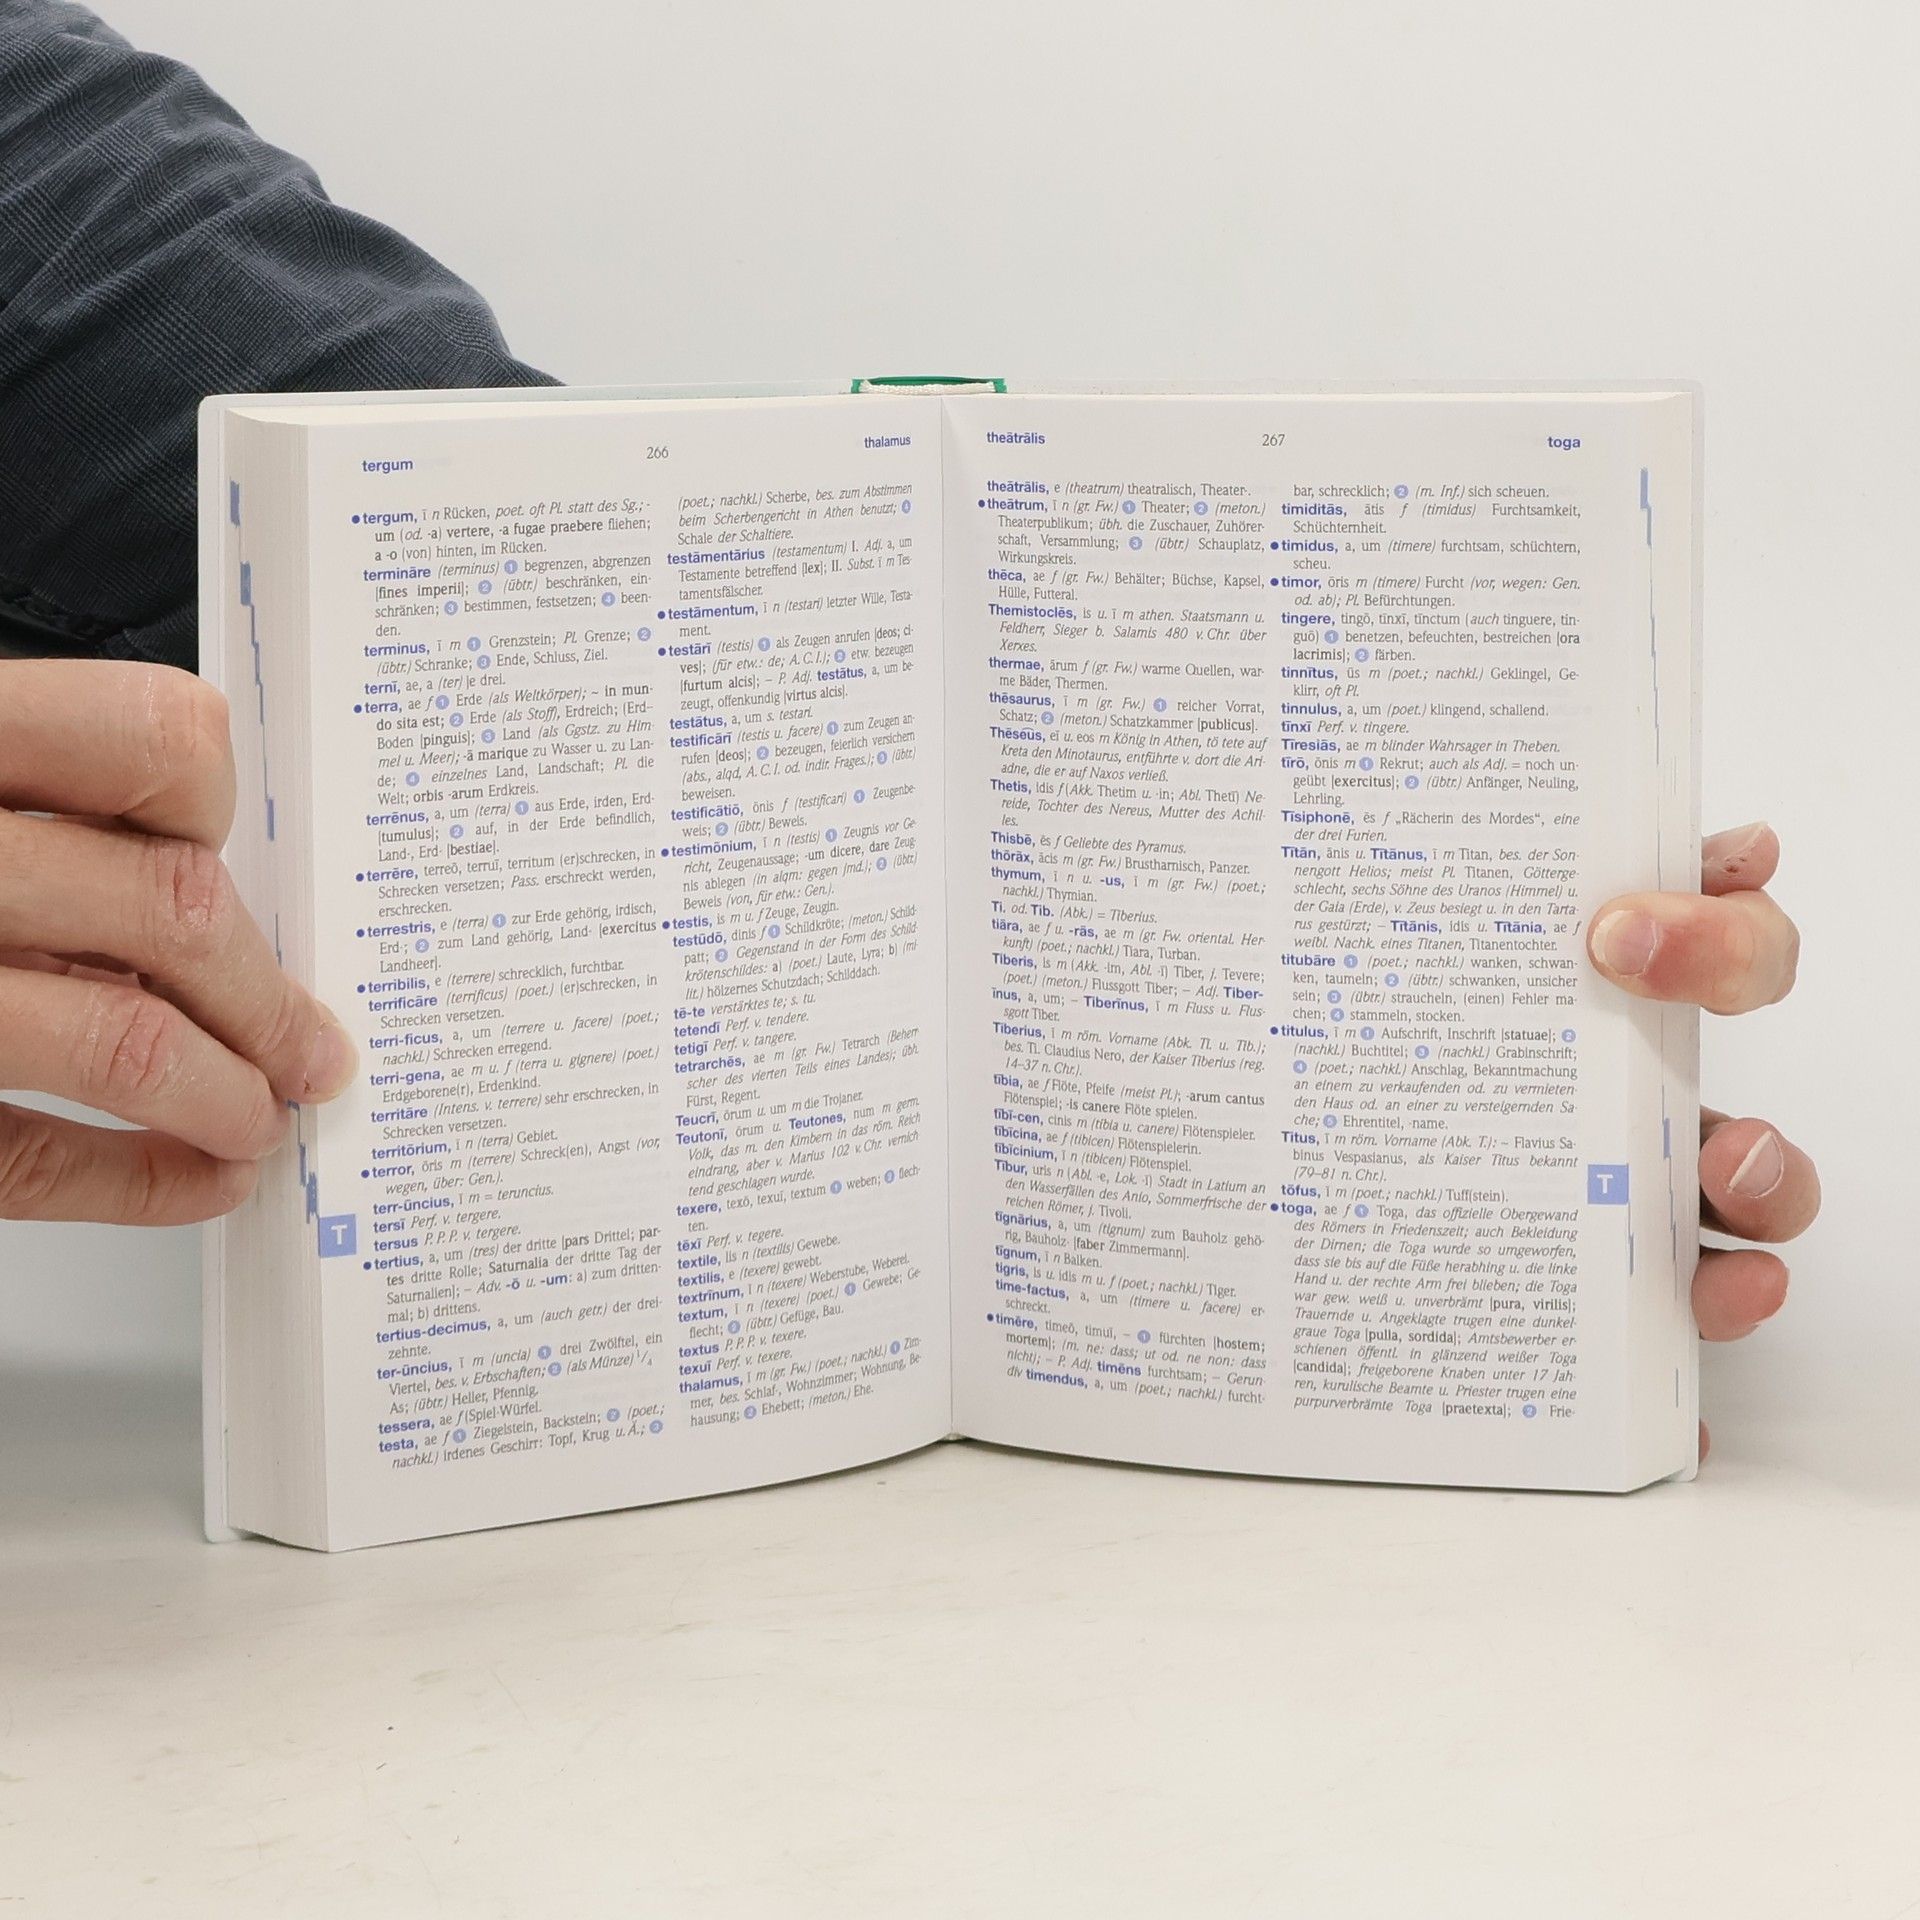 tergum
266
thalamus
●tergum, ī n Rücken, poet. oft Pl. statt des Sg.; -
um (od. -a) vertere, -a fugae praebere fliehen;
a -o (von) hinten, im Rücken.
termināre (terminus) ❶ begrenzen, abgrenzen
[fines imperii]; ❷ (übtr.) beschränken, ein-
schränken; ❸ bestimmen, festsetzen; ❹ been-
den.
terminus, ī m ❶ Grenzstein; Pl. Grenze; ❷
(übtr.) Schranke; ❸ Ende, Schluss, Ziel.
ternī, ae, a (ter) je drei.
●terra, ae f ❶ Erde (als Weltkörper); ~ in mun-
do sita est; ❷ Erde (als Stoff), Erdreich; (Erd-
Boden [pinguis]; ❸ Land (als Ggstz. zu Him-
mel u. Meer); -ā marique zu Wasser u. zu Lan-
de; ❹ einzelnes Land, Landschaft; Pl. die
Welt; orbis -arum Erdkreis.
terrēnus, a, um (terra) ❶ aus Erde, irden, Erd-
[tumulus]; ❷ auf, in der Erde befindlich,
Land-, Erd- [bestiae].
●terrēre, terreō, terruī, territum (er)schrecken, in
Schrecken versetzen; Pass. erschreckt werden,
erschrecken.
●terrestris, e (terra) ❶ zur Erde gehörig, irdisch,
Erd-; ❷ zum Land gehörig, Land- [exercitus
Landheer].
●terribilis, e (terrere) schrecklich, furchtbar.
terrificāre (terrificus) (poet.) (er)schrecken, in
Schrecken versetzen.
terri-ficus, a, um (terrere u. facere) (poet.;
nachkl.) Schrecken erregend.
terri-gena, ae m u. f (terra u. gignere) (poet.)
Erdgeborene(r), Erdenkind.
territāre (Intens. v. terrere) sehr erschrecken, in
Schrecken versetzen.
territōrium, ī n (terra) Gebiet.
●terror, ōris m (terrere) Schreck(en), Angst (vor,
wegen, über: Gen.).
terr-ūncius, ī m = teruncius.
tersī Perf. v. tergere.
tersus P. P. P. v. tergere.
●tertius, a, um (tres) der dritte [pars Drittel; par-
tes dritte Rolle; Saturnalia der dritte Tag der
Saturnalien]; – Adv. -ō u. -um: a) zum dritten-
mal; b) drittens.
tertius-decimus, a, um (auch getr.) der drei-
zehnte.
ter-ūncius, ī m (uncia) ❶ drei Zwölftel, ein
Viertel, bes. v. Erbschaften; ❷ (als Münze) ¹/₄
As; (übtr.) Heller, Pfennig.
tessera, ae f (Spiel-)Würfel.
testa, ae f ❶ Ziegelstein, Backstein; ❷ (poet.;
nachkl.) irdenes Geschirr: Topf, Krug u. Ä.; ❸
(poet.; nachkl.) Scherbe, bes. zum Abstimmen
beim Scherbengericht in Athen benutzt; ❹
Schale der Schaltiere.
testāmentārius (testamentum) I. Adj. a, um
Testamente betreffend [lex]; II. Subst. ī m Tes-
tamentsfälscher.
●testāmentum, ī n (testari) letzter Wille, Testa-
ment.
●testārī (testis) ❶ als Zeugen anrufen [deos; ci-
ves]; (für etw.: de; A. C. I.); ❷ etw. bezeugen
[furtum alcis]; – P. Adj. testātus, a, um be-
zeugt, offenkundig [virtus alcis].
testātus, a, um s. testari.
testificārī (testis u. facere) ❶ zum Zeugen an-
rufen [deos]; ❷ bezeugen, feierlich versichern
(abs., alqd, A. C. I. od. indir. Frages.); ❸ (übtr.)
beweisen.
testificātiō, ōnis f (testificari) ❶ Zeugenbe-
weis; ❷ (übtr.) Beweis.
●testimōnium, ī n (testis) ❶ Zeugnis vor Ge-
richt, Zeugenaussage; -um dicere, dare Zeug-
nis ablegen (in alqm: gegen jmd.); ❷ (übtr.)
Beweis (von, für etw.: Gen.).
●testis, is m u. f Zeuge, Zeugin.
testūdō, dinis f ❶ Schildkröte; (meton.) Schild-
patt; ❷ Gegenstand in der Form des Schild-
krötenschildes: a) (poet.) Laute, Lyra; b) (mi-
lit.) hölzernes Schutzdach; Schilddach.
tē-te verstärktes te; s. tu.
tetendī Perf. v. tendere.
tetigī Perf. v. tangere.
tetrarchēs, ae m (gr. Fw.) Tetrarch (Beherr-
scher des vierten Teils eines Landes); übh.
Fürst, Regent.
Teucrī, ōrum u. um m die Trojaner.
Teutonī, ōrum u. Teutones, num m germ.
Volk, das m. den Kimbern in das röm. Reich
eindrang, aber v. Marius 102 v. Chr. vernich-
tend geschlagen wurde.
texere, texō, texuī, textum ❶ weben; ❷ flech-
ten.
tēxī Perf. v. tegere.
textile, lis n (textilis) Gewebe.
textilis, e (texere) gewebt.
textrīnum, ī n (texere) Weberstube, Weberei.
textum, ī n (texere) (poet.) ❶ Gewebe; Ge-
flecht; ❷ (übtr.) Gefüge, Bau.
textus P. P. P. v. texere.
texuī Perf. v. texere.
thalamus, ī m (gr. Fw.) (poet.; nachkl.) ❶ Zim-
mer, bes. Schlaf-, Wohnzimmer; Wohnung, Be-
hausung; ❷ Ehebett; (meton.) Ehe.
T
theātrālis
267
toga
theātrālis, e (theatrum) theatralisch, Theater-.
●theātrum, ī n (gr. Fw.) ❶ Theater; ❷ (meton.)
Theaterpublikum; übh. die Zuschauer, Zuhörer-
schaft, Versammlung; ❸ (übtr.) Schauplatz,
Wirkungskreis.
thēca, ae f (gr. Fw.) Behälter; Büchse, Kapsel,
Hülle, Futteral.
Themistoclēs, is u. ī m athen. Staatsmann u.
Feldherr, Sieger b. Salamis 480 v. Chr. über
Xerxes.
thermae, ārum f (gr. Fw.) warme Quellen, war-
me Bäder, Thermen.
thēsaurus, ī m (gr. Fw.) ❶ reicher Vorrat,
Schatz; ❷ (meton.) Schatzkammer [publicus].
Thēseus, eī u. eos m König in Athen, tö tete auf
Kreta den Minotaurus, entführte v. dort die Ari-
adne, die er auf Naxos verließ.
Thetis, idis f (Akk. Thetim u. -in; Abl. Thetī) Ne-
reide, Tochter des Nereus, Mutter des Achil-
les.
Thisbē, ēs f Geliebte des Pyramus.
thōrāx, ācis m (gr. Fw.) Brustharnisch, Panzer.
thymum, ī n u. -us, ī m (gr. Fw.) (poet.;
nachkl.) Thymian.
Ti. od. Tib. (Abk.) = Tiberius.
tiāra, ae f u. -rās, ae m (gr. Fw. oriental. Her-
kunft) (poet.; nachkl.) Tiara, Turban.
Tiberis, is m (Akk. -im, Abl. -ī) Tiber, j. Tevere;
(poet.) (meton.) Flussgott Tiber; – Adj. Tiber-
īnus, a, um; – Tiberīnus, ī m Fluss u. Flus-
sgott Tiber.
Tiberius, ī m röm. Vorname (Abk. Ti. u. Tib.);
bes. Ti. Claudius Nero, der Kaiser Tiberius (reg.
14–37 n. Chr.).
tībia, ae f Flöte, Pfeife (meist Pl.); -arum cantus
Flötenspiel; -is canere Flöte spielen.
tībī-cen, cinis m (tibia u. canere) Flötenspieler.
tībīcina, ae f (tibicen) Flötenspielerin.
tībīcinium, ī n (tibicen) Flötenspiel.
Tībur, uris n (Abl. -e, Lok. -ī) Stadt in Latium an
den Wasserfällen des Anio, Sommerfrische der
reichen Römer, j. Tivoli.
tīgnārius, a, um (tignum) zum Bauholz gehö-
rig, Bauholz- [faber Zimmermann].
tīgnum, ī n Balken.
tigris, is u. idis m u. f (poet.; nachkl.) Tiger.
time-factus, a, um (timere u. facere) er-
schreckt.
●timēre, timeō, timuī, – ❶ fürchten [hostem;
mortem]; (m. ne: dass; ut od. ne non: dass
nicht); – P. Adj. timēns furchtsam; – Gerun-
div timendus, a, um (poet.; nachkl.) furcht-
bar, schrecklich; ❷ (m. Inf.) sich scheuen.
timiditās, ātis f (timidus) Furchtsamkeit,
Schüchternheit.
●timidus, a, um (timere) furchtsam, schüchtern,
scheu.
●timor, ōris m (timere) Furcht (vor, wegen: Gen.
od. ab); Pl. Befürchtungen.
tingere, tingō, tīnxī, tīnctum (auch tinguere, tin-
guō) ❶ benetzen, befeuchten, bestreichen [ora
lacrimis]; ❷ färben.
tinnītus, ūs m (poet.; nachkl.) Geklingel, Ge-
klirr, oft Pl.
tinnulus, a, um (poet.) klingend, schallend.
tīnxī Perf. v. tingere.
Tīresiās, ae m blinder Wahrsager in Theben.
tīrō, ōnis m ❶ Rekrut; auch als Adj. = noch un-
geübt [exercitus]; ❷ (übtr.) Anfänger, Neuling,
Lehrling.
Tīsiphonē, ēs f „Rächerin des Mordes“, eine
der drei Furien.
Tītān, ānis u. Tītānus, ī m Titan, bes. der Son-
nengott Helios; meist Pl. Titanen, Götterge-
schlecht, sechs Söhne des Uranos (Himmel) u.
der Gaia (Erde), v. Zeus besiegt u. in den Tarta-
rus gestürzt; – Tītānis, idis u. Tītānia, ae f
weibl. Nachk. eines Titanen, Titanentochter.
titubāre ❶ (poet.; nachkl.) wanken, schwan-
ken, taumeln; ❷ (übtr.) schwanken, unsicher
sein; ❸ (übtr.) straucheln, (einen) Fehler ma-
chen; ❹ stammeln, stocken.
●titulus, ī m ❶ Aufschrift, Inschrift [statuae]; ❷
(nachkl.) Buchtitel; ❸ (nachkl.) Grabinschrift;
❹ (poet.; nachkl.) Anschlag, Bekanntmachung
an einem zu verkaufenden od. zu vermieten-
den Haus od. an einer zu versteigernden Sa-
che; ❺ Ehrentitel, -name.
Titus, ī m röm. Vorname (Abk. T.): ~ Flavius Sa-
binus Vespasianus, als Kaiser Titus bekannt
(79–81 n. Chr.).
tōfus, ī m (poet.; nachkl.) Tuff(stein).
●toga, ae f ❶ Toga, das offizielle Obergewand
des Römers in Friedenszeit; auch Bekleidung
der Dirnen; die Toga wurde so umgeworfen,
dass sie bis auf die Füße herabhing u. die linke
Hand u. der rechte Arm frei blieben; die Toga
war gew. weiß u. unverbrämt [pura, virilis];
Trauernde u. Angeklagte trugen eine dunkel-
graue Toga [pulla, sordida]; Amtsbewerber er-
schienen öffentl. in glänzend weißer Toga
[candida]; freigeborene Knaben unter 17 Jah-
ren, kurulische Beamte u. Priester trugen eine
purpurverbrämte Toga [praetexta]; ❷ Frie-
T